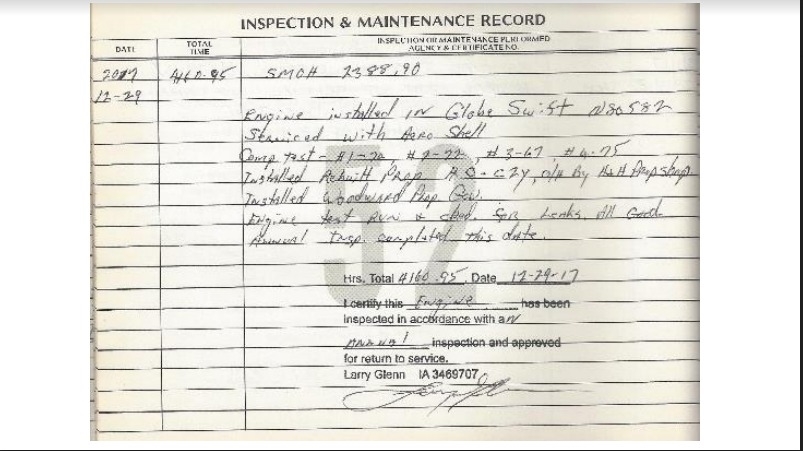 INSPECTION & MAINTENANCE RECORD
DATE
TOTAL TIME
INSPECTION OR MAINTENANCE PERFORMED
AGENCY & CERTIFICATE NO.
2017 4160.95 SMOH 2388.90
12-29
Engine installed IN Globe Swift N80582
Serviced with Aero Shell
Comp test - #1-70, #2-72, #3-67, #4-75
Installed Rebuilt Prop O/H By H&H Prop shop
Installed Woodward Prop Gov.
Engine test Run & ckd. For Leaks. All Good
Annual Insp. completed this date.
52
Hrs. Total 4160.95 Date 12-29-17
I certify this Engine has been
inspected in accordance with an
annual inspection and approved
for return to service.
Larry Glenn IA 3469707